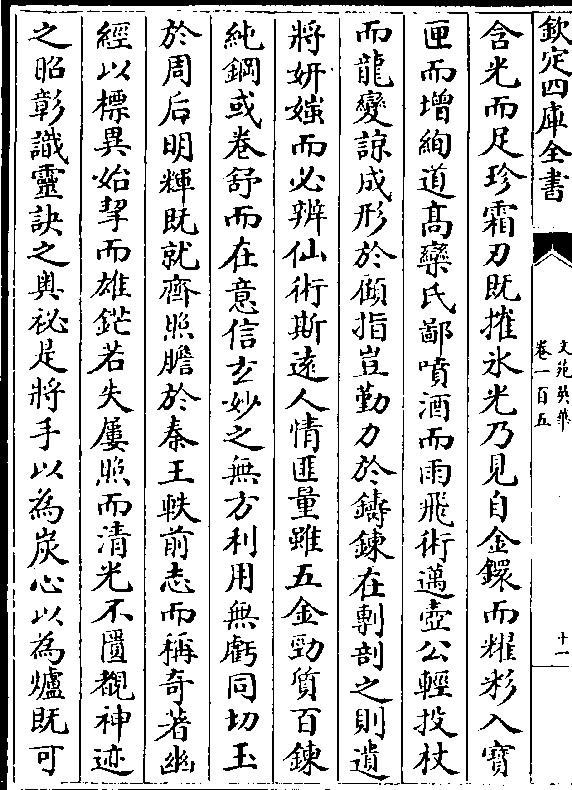 欽定四庫全書
文苑英華
卷一百五
十一
含光而足珍霜刃既摧氷光乃見自金鐶而耀彩入寶
匣而增絢道髙欒氏鄙噴酒而雨飛術邁壺公輕投杖
而龍變諒成形於顧指豈勤力於鑄鍊在剸剖之則遺
將妍媸而必辨仙術斯逺人情匪量雖五金勁質百鍊
純鋼或卷舒而在意信𤣥妙之無方利用無虧同切玉
於周后明輝既就齊照膽於秦王軼前志而稱奇著幽
經以標異始挈而雄鋩若失屢照而清光不匱覩神迹
之昭彰識靈訣之輿祕是將手以為炭心以為爐既可